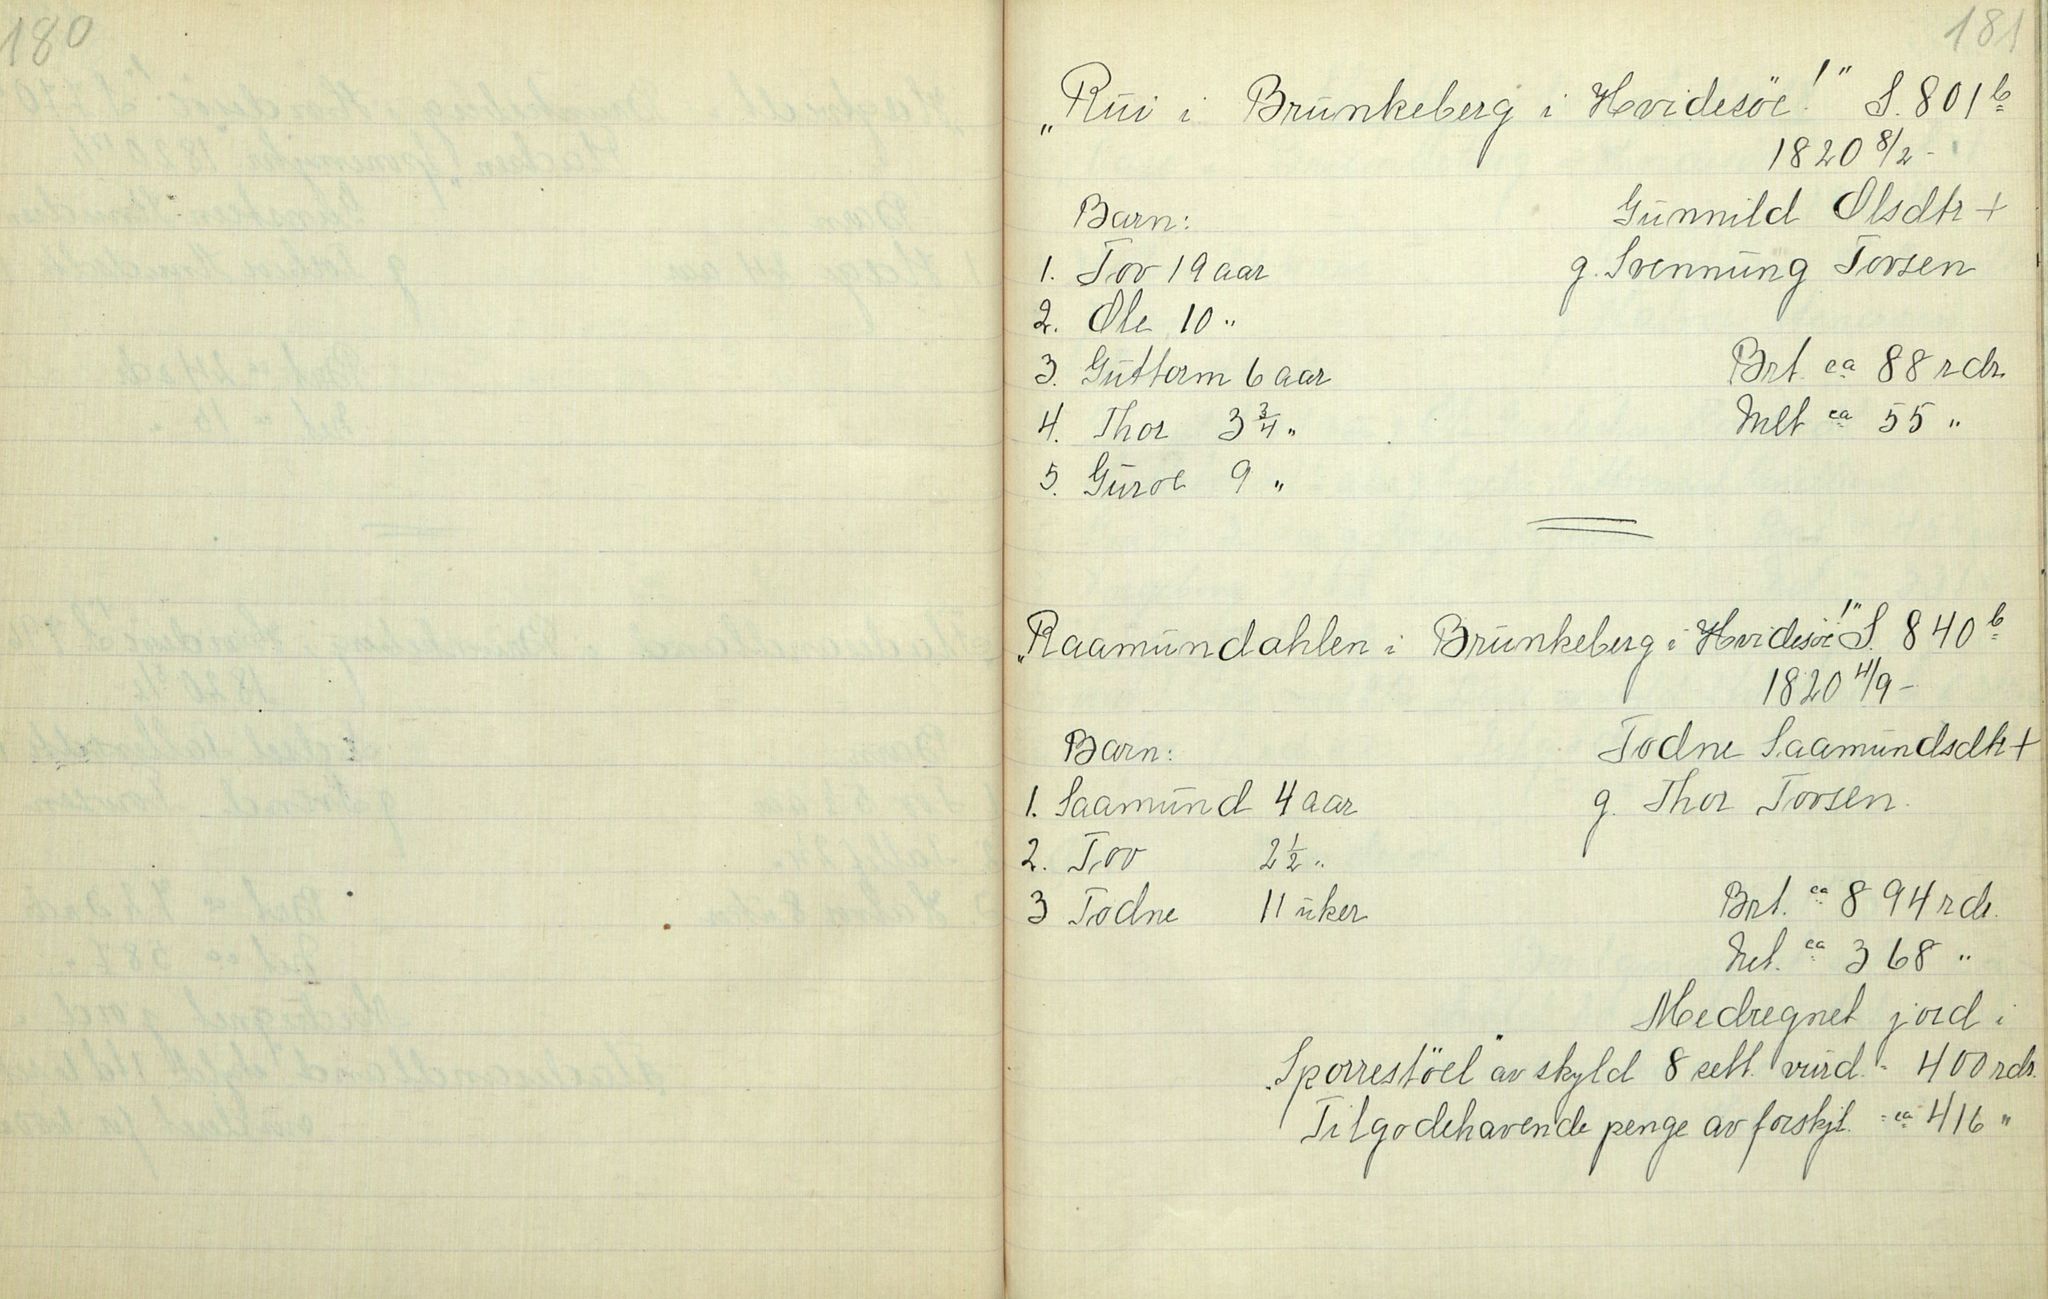 180
181
„Rui i Brunkeberg i Hvidesöe!" S. 801 b
1820 8/2 -
Barn: Gunnild Olsdtr +
1. Tov 19 aar g. Svennung Tovsen
2. Ole 10 "
3. Guttorm 6 aar Brt. ca 88 rdr.
4. Thor 3 3/4 " Net ca 55 "
5. Guroe 9 "
„Raamundahlen i Brunkeberg i Hvidesöe!" S. 840 b
1820 4/9 -
Barn: Todne Saamundsdtr +
1. Saamund 4 aar g. Thor Tovsen.
2. Tov 2 1/2 "
3 Todne 11 uker Brt. ca 894 rdr.
Net. ca 368 "
Medregnet jord i
„Sporrestöel" av skyld 8 sett. vurd. - 400 rdr.
Tilgodehavende penge av forskjl. - ca 416 "